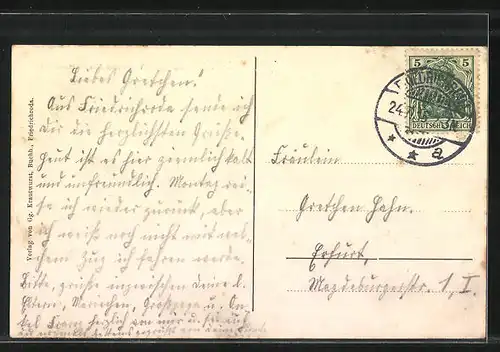 Liebes Gretchen!
Aus Friedrichroda sende ich
Dir die herzlichsten Grüße.
Heut ist es hier ziemlich kalt
und unfreundlich. Montag rei-
se ich wieder zurück, aber
ich weiß noch nicht mit wel-
chem Zug ich fahren werde.
Bitte, grüße inzwischen deine l.
Eltern, Großpapa u. On-
kel Franz herzlich von mir u.
Verlag von Gg. Krauswurst, Buchh., Friedrichroda.
5 5
DEUTSCHES REICH
FRIEDRICHRODA
24.
* * a
Fräulein
Gretchen Hahn.
Erfurt,
Magdeburgerstr. 1, I.